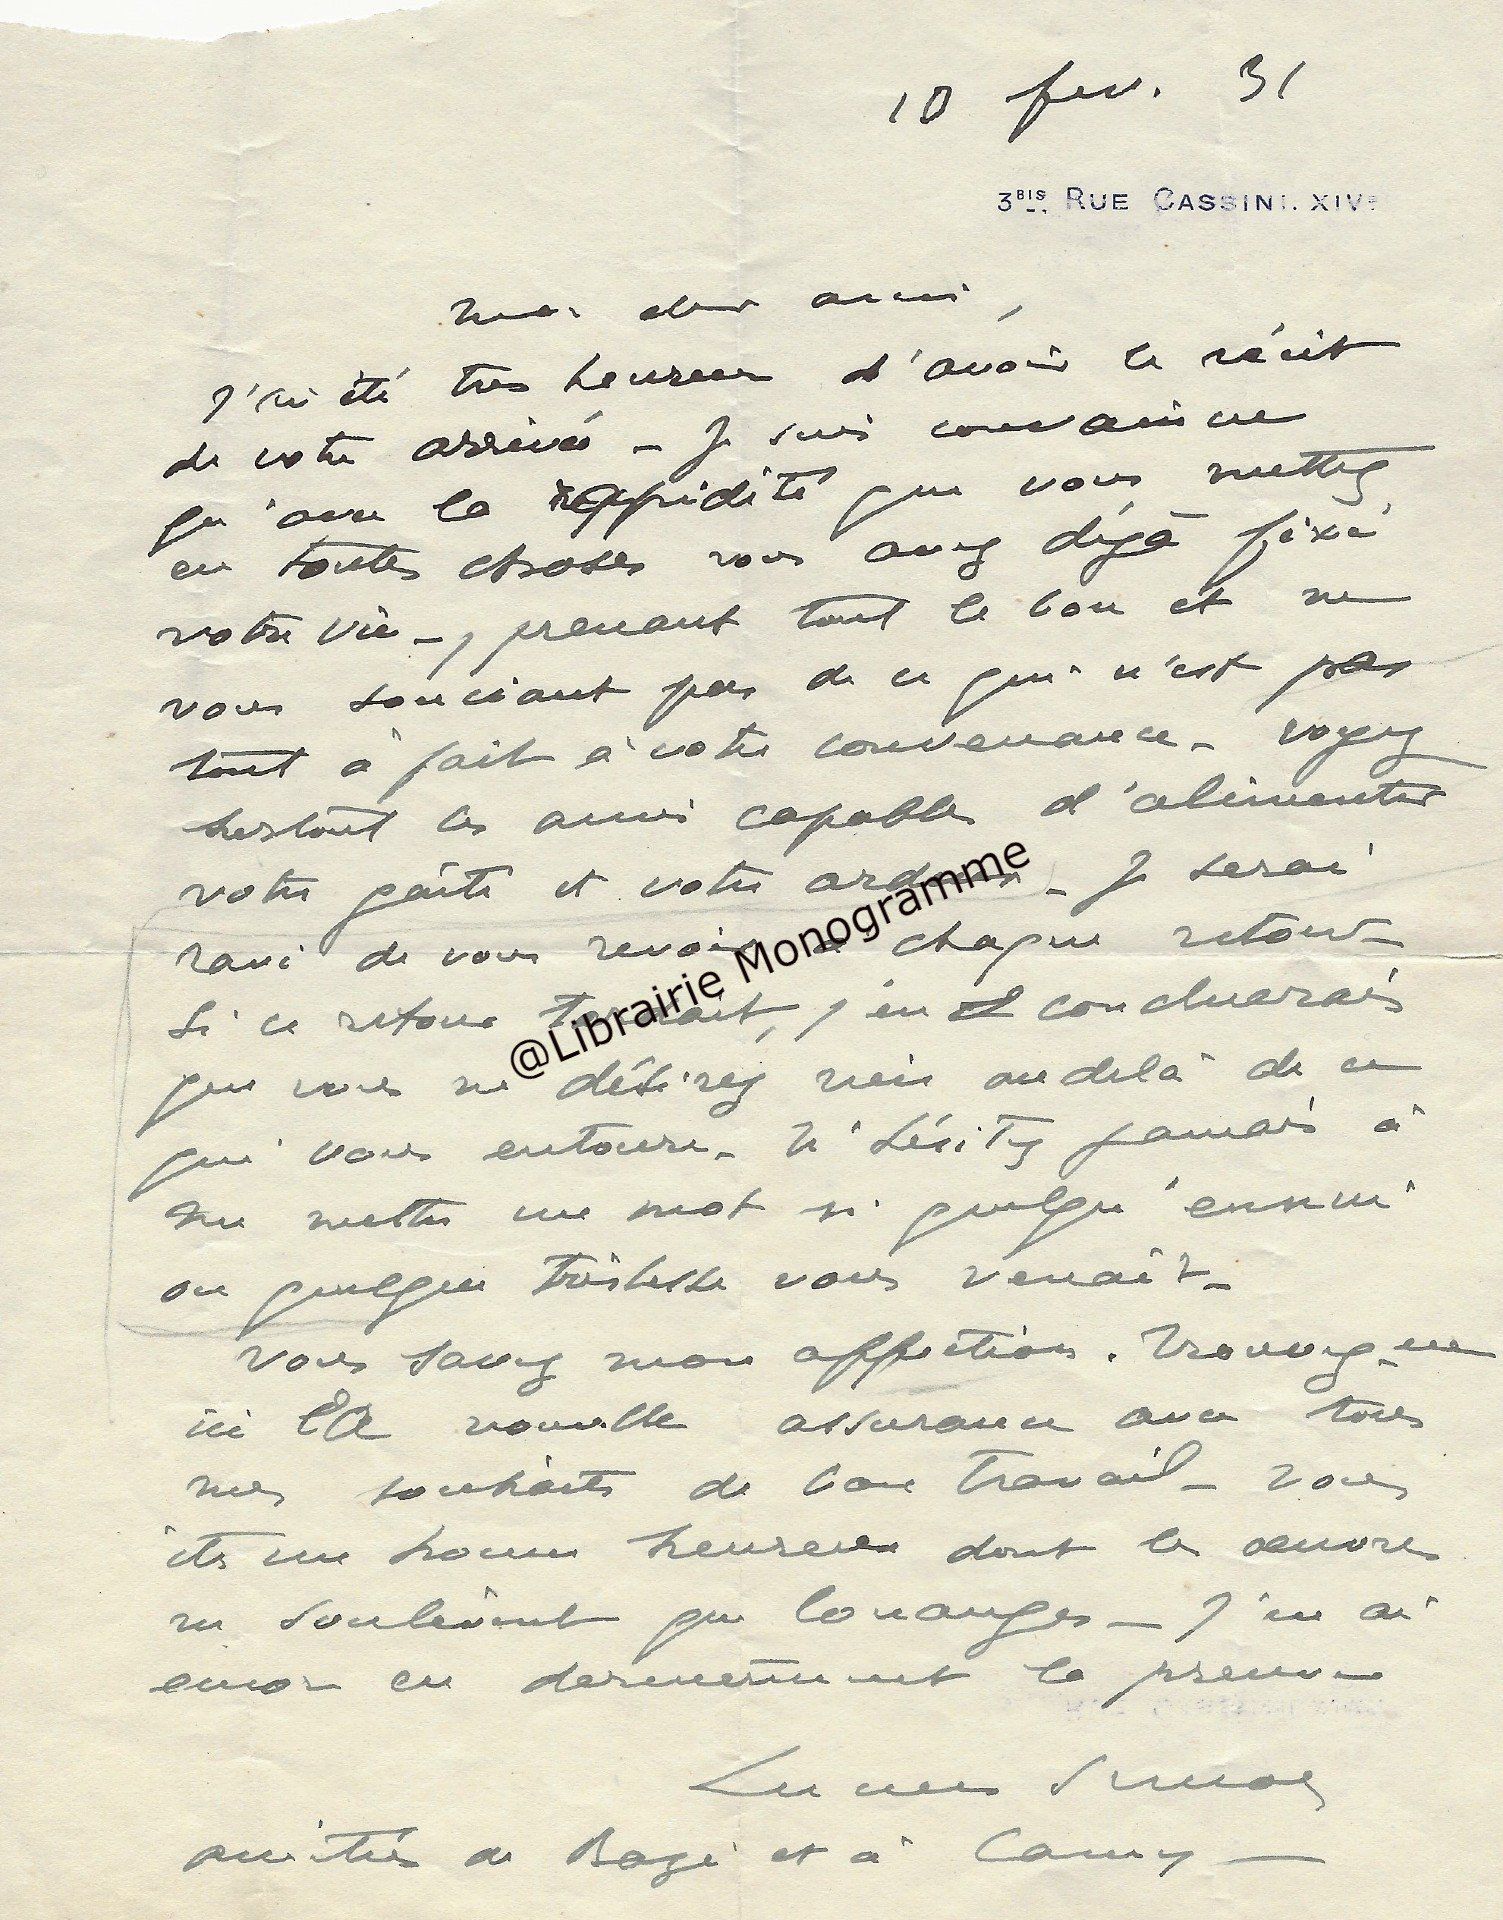 10 fev. 31
3BIS RUE CASSINI. XIVe
Mon cher ami,
J'ai été très heureux d'avoir le récit
de votre arrivée - Je suis convaincu
qu'avec la rapidité que vous mettez
en toutes choses vous avez déjà fixé
votre vie -, prenant tout le bon et ne
vous souciant pas de ce qui n'est pas
tout à fait à votre convenance - Voyez
surtout les amis capables d'alimenter
votre gaîté et votre ardeur - Je serai
ravi de vous revoir à chaque retour -
Si ce retour tardait, j'en concluerais
que vous ne désirez rien au delà de ce
qui vous entoure - N'hésitez jamais à
me mettre un mot si quelqu'ennui
ou quelque tristesse vous venait -
Vous savez mon affection. Trouvez-en
ici la nouvelle assurance avec tous
mes souhaits de bon travail - Vous
êtes un homme heureux dont les œuvres
ne soulèvent que louanges - J'en ai
encore eu dernièrement la preuve
Lucien Simon
amitiés de et à Camy -
@Librairie Monogramme